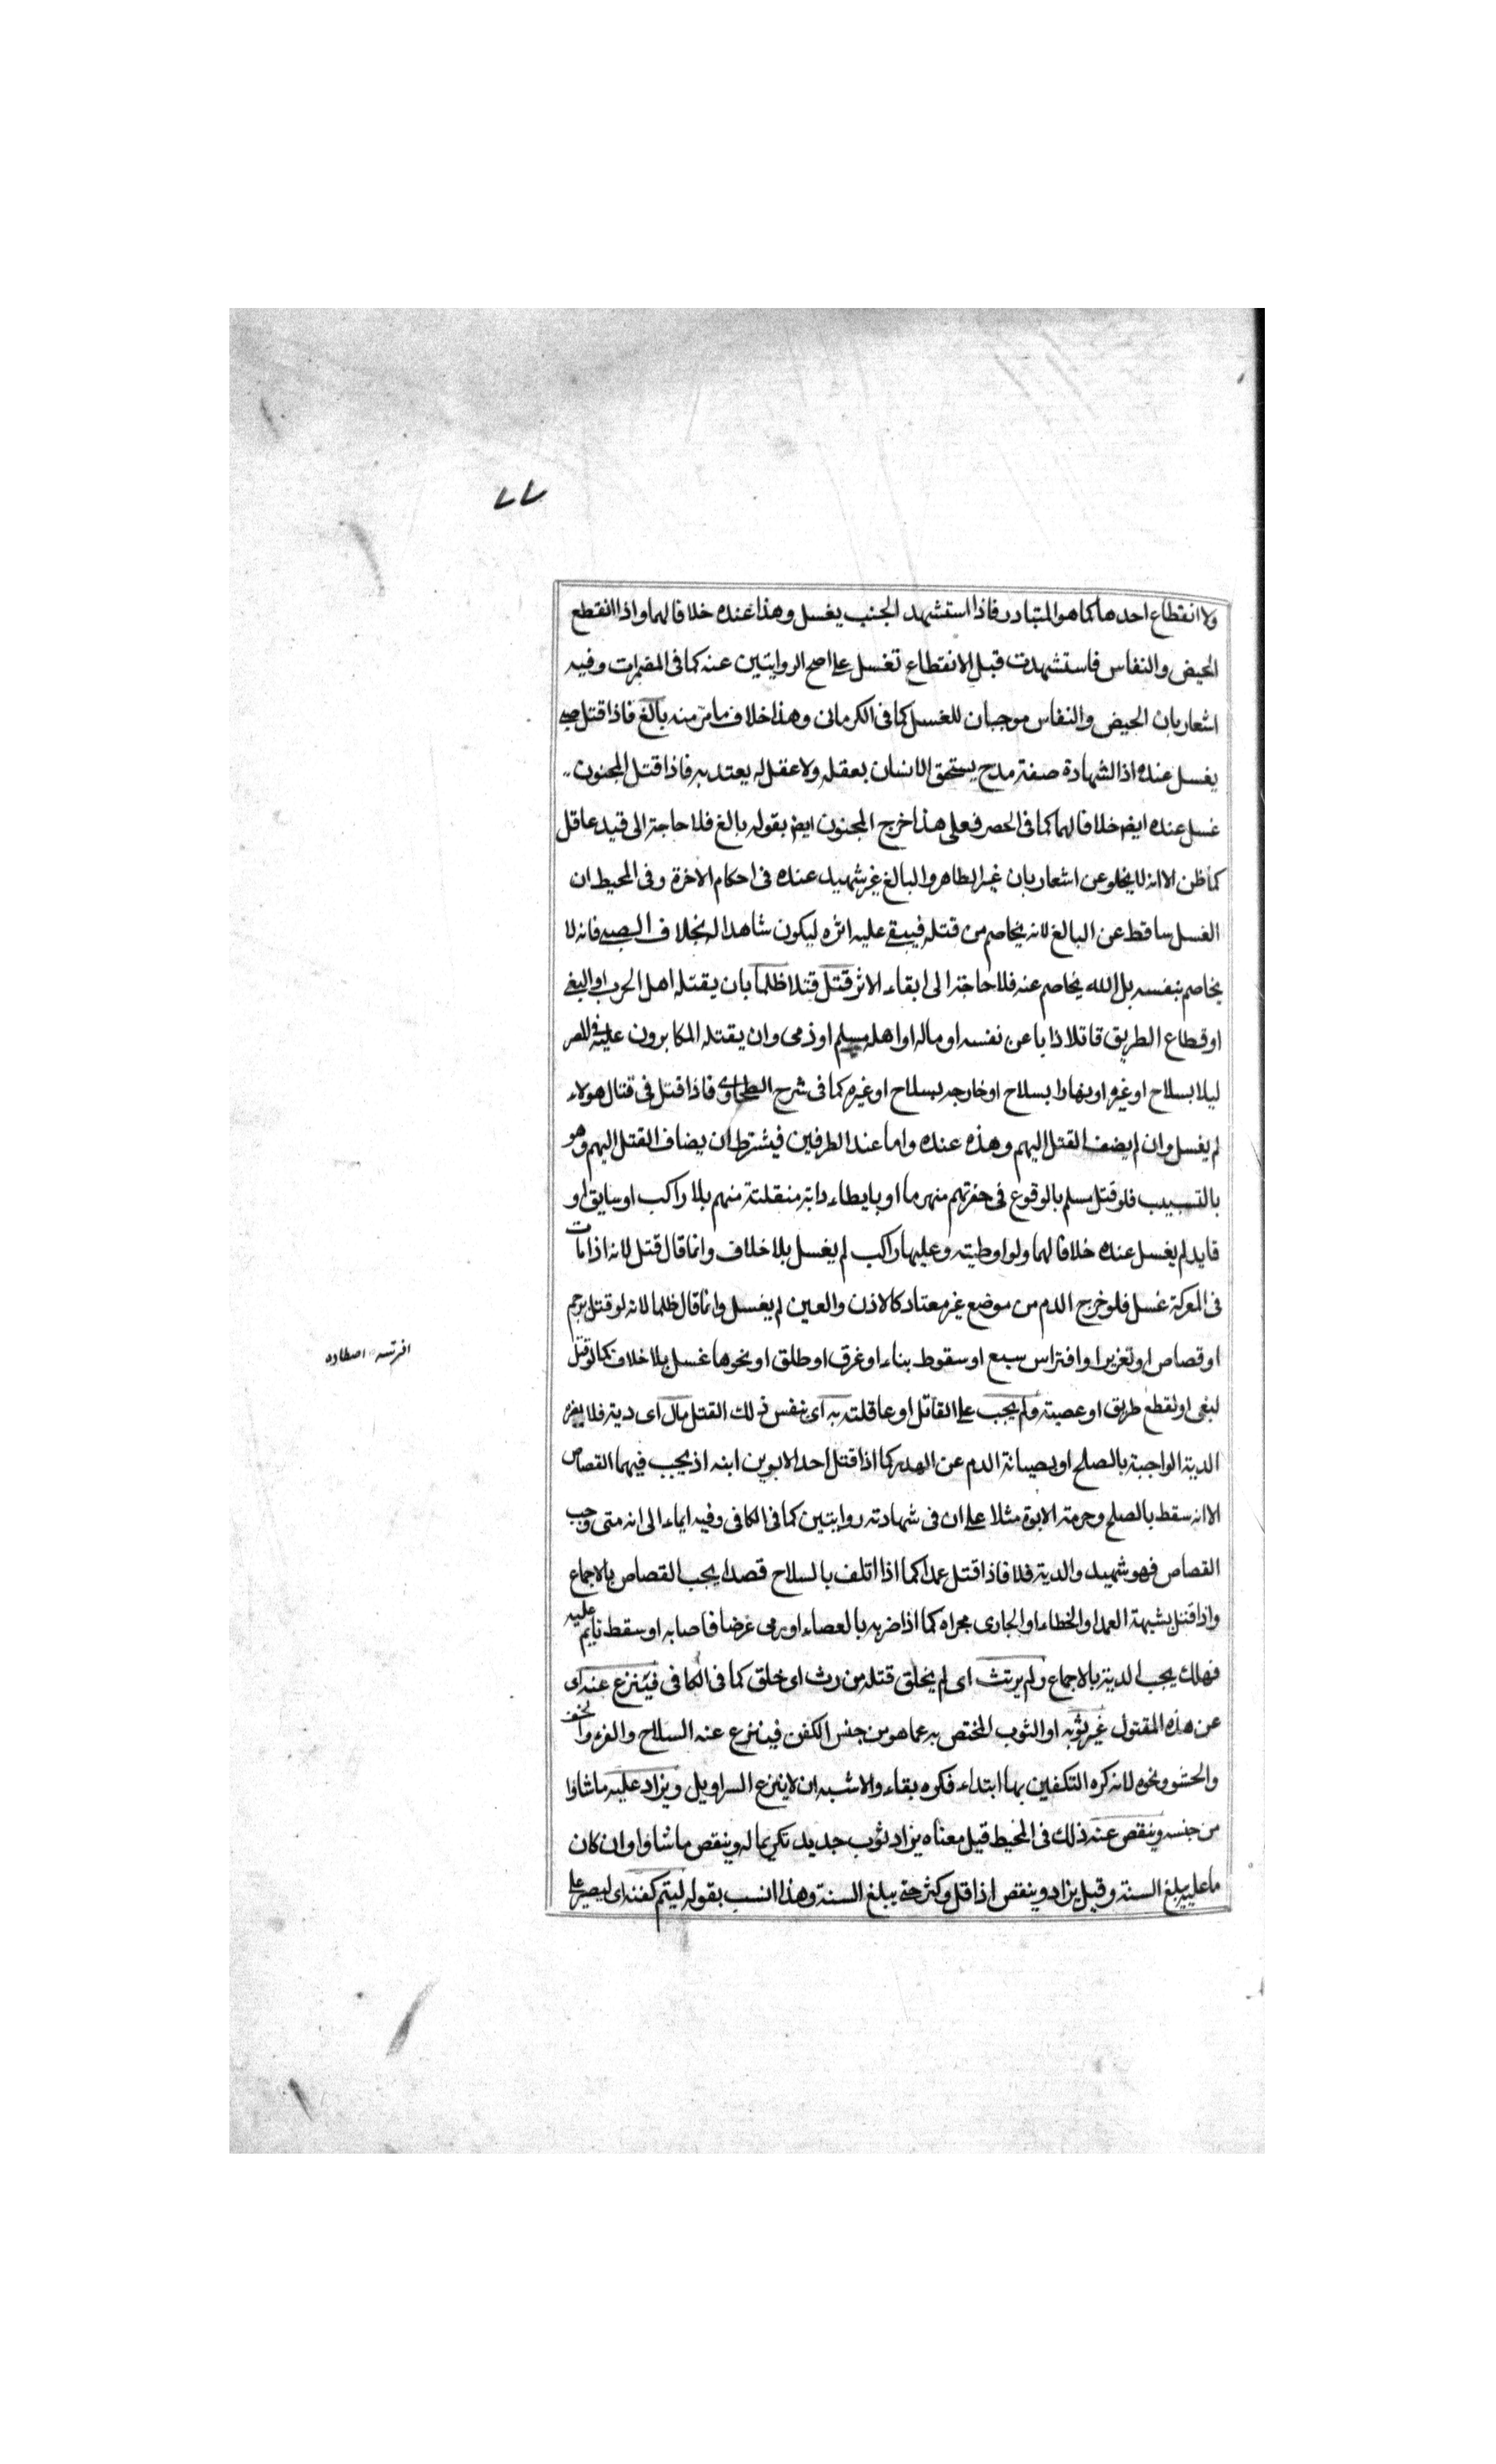 ٧٧
ولا انقطاع احدهما كما هو المتبادر فاذا استشهد الجنب يغسل وهذا عنده خلافا لهما واذا انقطع
الحيض والنفاس فاستشهدت قبل الانقطاع تغسل على اصح الروايتين عنه كما فى المضمرات وفيه
اشعار بان الحيض والنفاس موجبان للغسل كما فى الكرمانى وهذا خلاف ما مر منه بالغ فاذا قتل صبى
يغسل عنده اذ الشهادة صفة مدح يستحق الانسان بعقله ولا عقل له يعتد به فاذا قتل المجنون
غسل عنده ايض خلافا لهما كما فى الحصر فعلى هذا خرج المجنون ايض بقوله بالغ فلا حاجة الى قيد عاقل
كما ظن الا انه لا يخلو عن اشعار بان غير الطاهر والبالغ غير شهيد عنده فى احكام الاخرة وفى المحيط ان
الغسل ساقط عن البالغ لانه يخاصم من قتله فيبقى عليه اثره ليكون شاهدا له بخلاف الصبى فانه لا
يخاصم بنفسه بل الله يخاصم عنه فلا حاجة الى ابقاء الاثر قتل قتلا ظلما بان يقتله اهل الحرب او البغى
او قطاع الطريق قاتلا ذابا عن نفسه او ماله او اهله مسلم او ذمى وان يقتله المكابرون عليه فى المصر
ليلا بسلاح او غيره او نهارا بسلاح او خارجه بسلاح او غيره كما فى شرح الطحاوى فاذا قتل فى قتال هولاء
لم يغسل وان لم يضف القتل اليهم وهذه عنده واما عند الطرفين فيشترط ان يضاف القتل اليهم وهو
بالتسبيب فلو قتل مسلم بالوقوع فى حفرتهم منهرما او بايطاء دابة منفلتة منهم بلا راكب او سايق او
قايد لم يغسل عنده خلافا لهما ولو اوطيته وعليها راكب لم يغسل بلا خلاف وانما قال قتل لانه اذا مات
فى المعركة غسل فلو خرج الدم من موضع غير معتاد كالاذن والعين لم يغسل وانما قال ظلما لانه لو قتل برجم
او قصاص او تعزير او افتراس سبع او سقوط بناء او غرق او طلق او نحوها غسل بلا خلاف كما لو قتل
لبغى او لقطع طريق او عصبية ولم يجب على القاتل او عاقلته به اى بنفس ذلك القتل مال اى دية فلا يضره
الدية الواجبة بالصلح او بصيانة الدم عن الهدر كما اذا قتل احد الابوين ابنه اذ يجب فيهما القصاص
الا انه سقط بالصلح وحرمة الابوة مثلا على ان فى شهادته روايتين كما فى الكافى وفيه ايماء الى انه متى وجب
القصاص فهو شهيد والدية فلا فاذا قتل عمدا كما اذا اتلف بالسلاح قصدا يجب القصاص بالاجماع
واذا قتل بشبهة العمد او الخطاء او الجارى مجراه كما اذا ضربه بالعصاء او رمى غرضا فاصابه او سقط نايم عليه
فهلك يجب الدية بالاجماع ولم يرتث اى لم يخلق قتله من رث اى خلق كما فى الكافى فينزع عنه اى
عن هذه المقتول غير ثوبه او الثوب المختص به عما هو من جنس الكفن فينزع عنه السلاح والفرو والخف
والحشو ونحوه لانه كره التكفين بها ابتداء فكره بقاء والاشبه ان لا ينزع السراويل ويزاد عليه ما شاؤا
من جنسه وينقص عنه ذلك فى المحيط قيل معناه يزاد ثوب جديد تكريما له وينقص ما شاؤا وان كان
ما عليه يبلغ السنة وقيل يزاد وينقص اذا قل وكثر حتى يبلغ السنة وهذا انسب بقوله ليتم كفنه اى ليصير على
افرتسه اصطاده